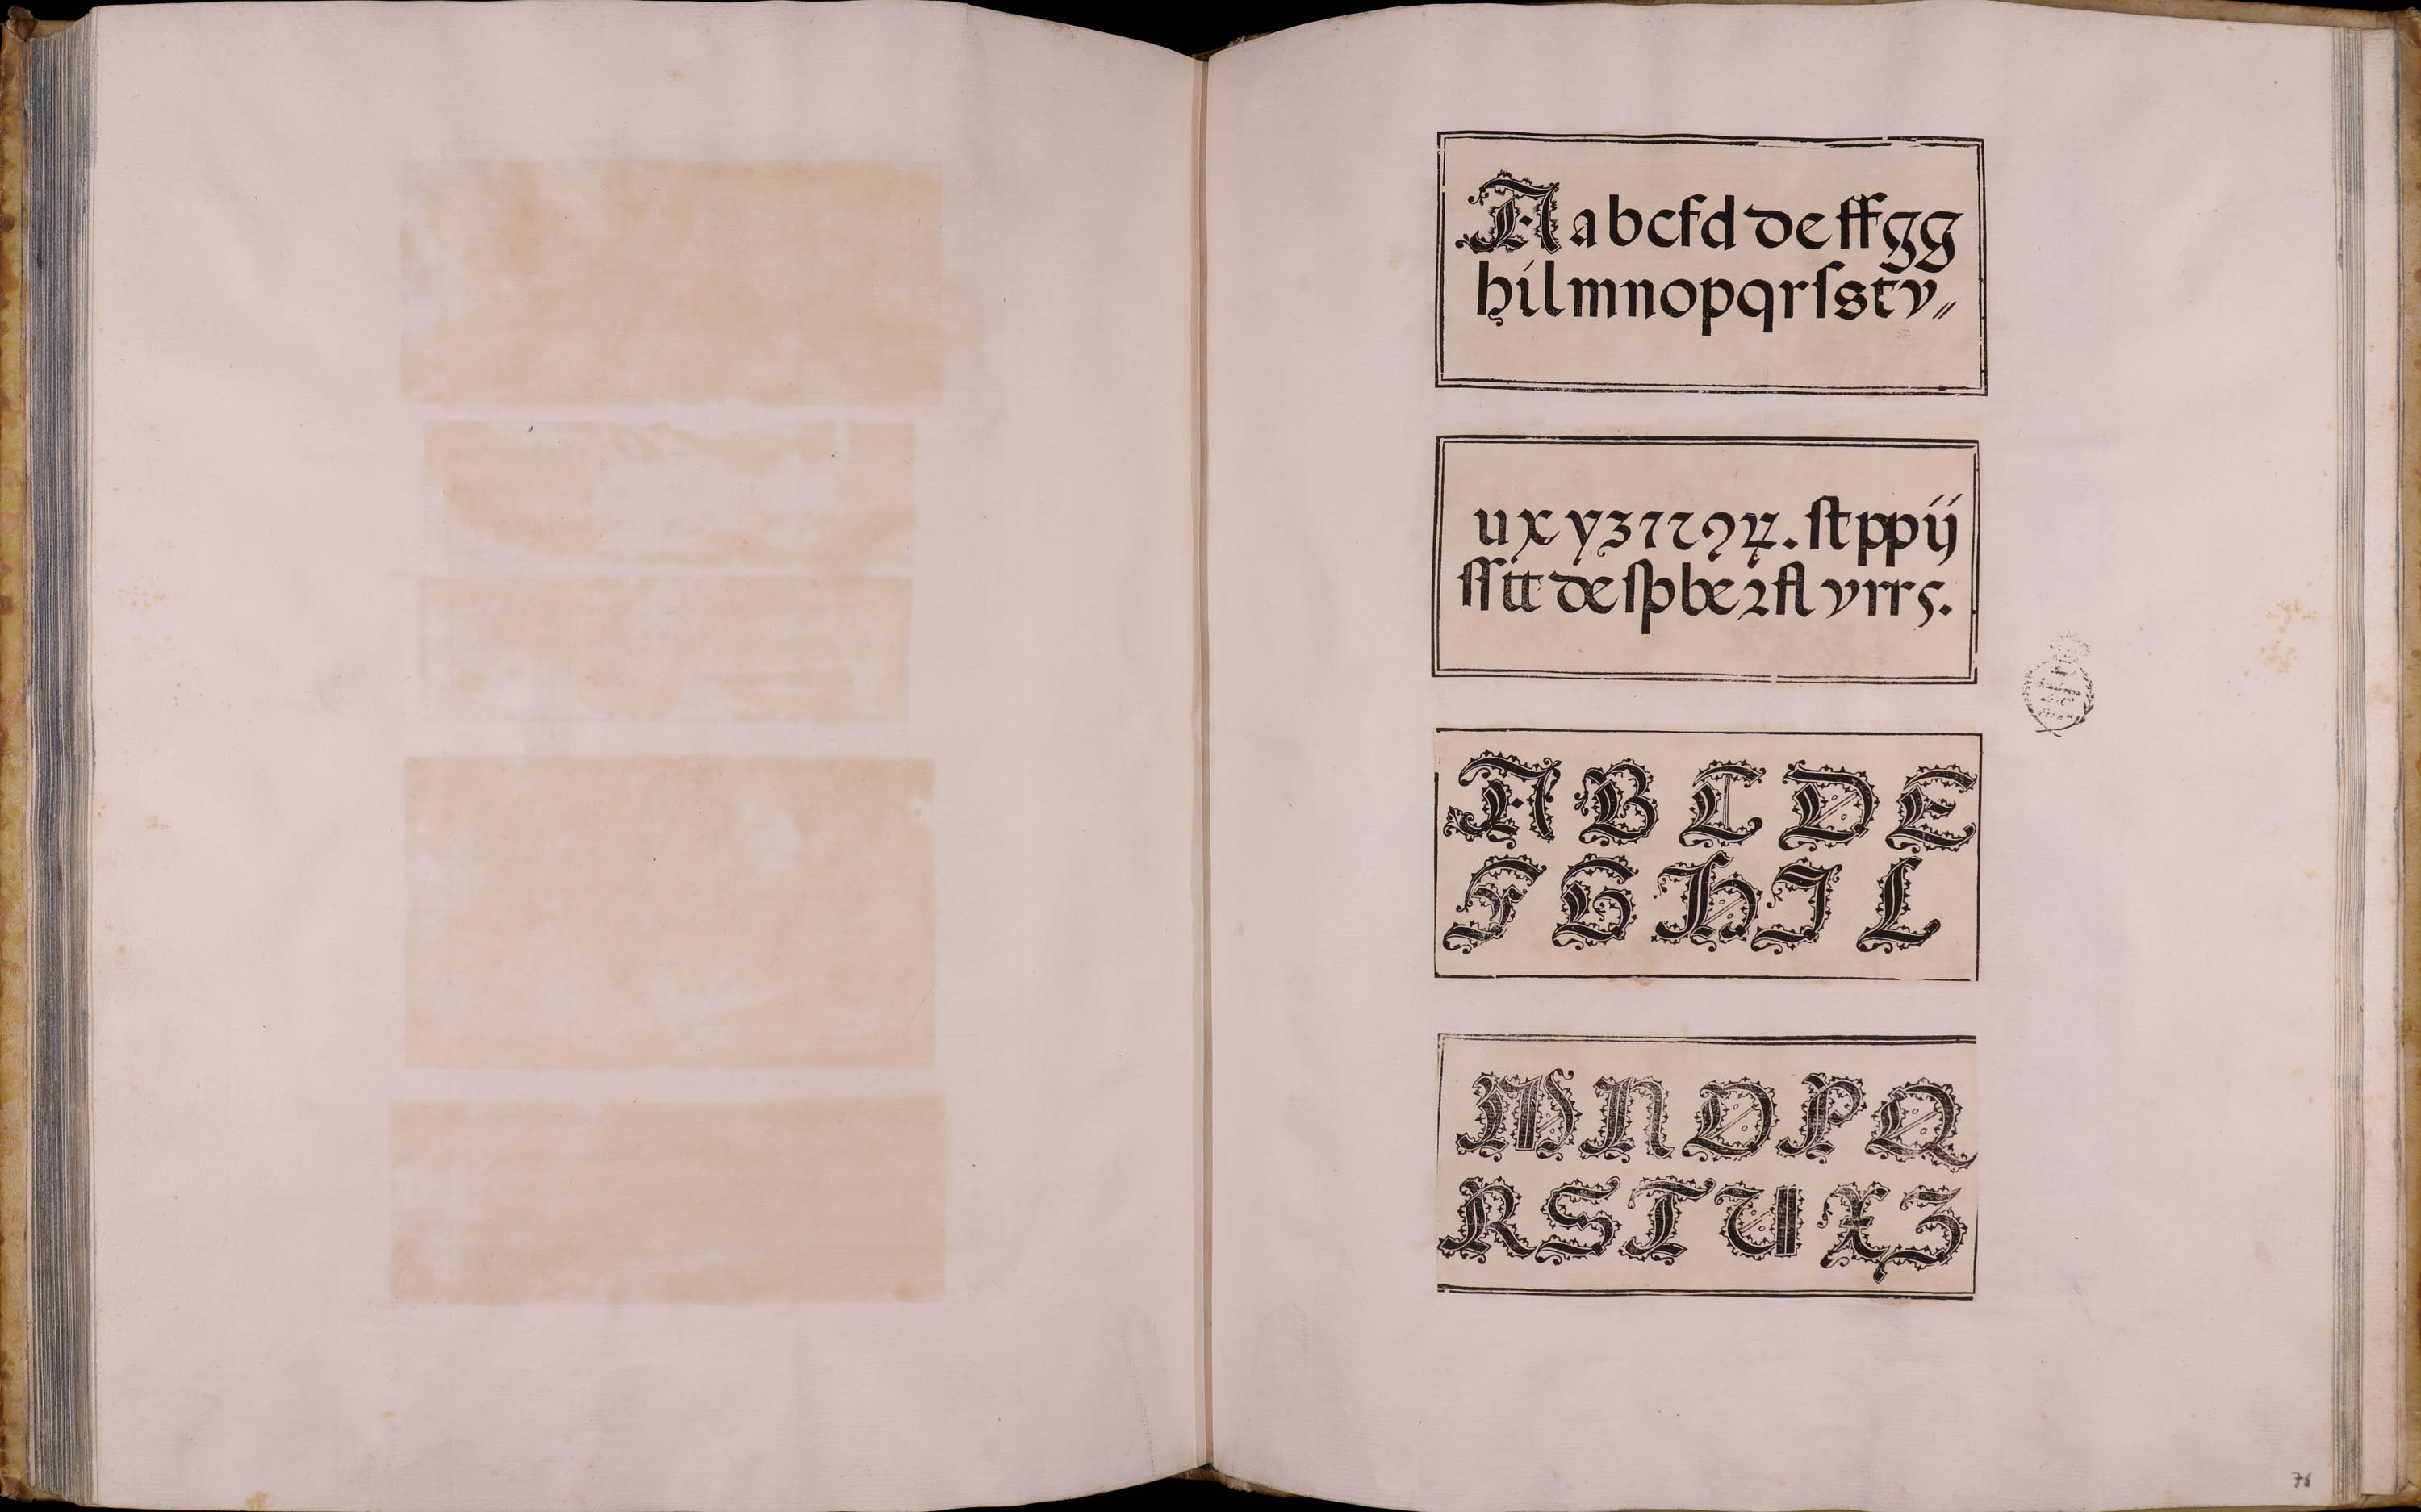 A a b c f d d e ff g g
h i l m n o p q r ſ s t v //
u x y z 7 2 9 4 . ſt pp ij
ſſ tt de ſp be 2 fl v r r s .
A B C D E
F G H I L
M N O P Q
R S T U X Z
76